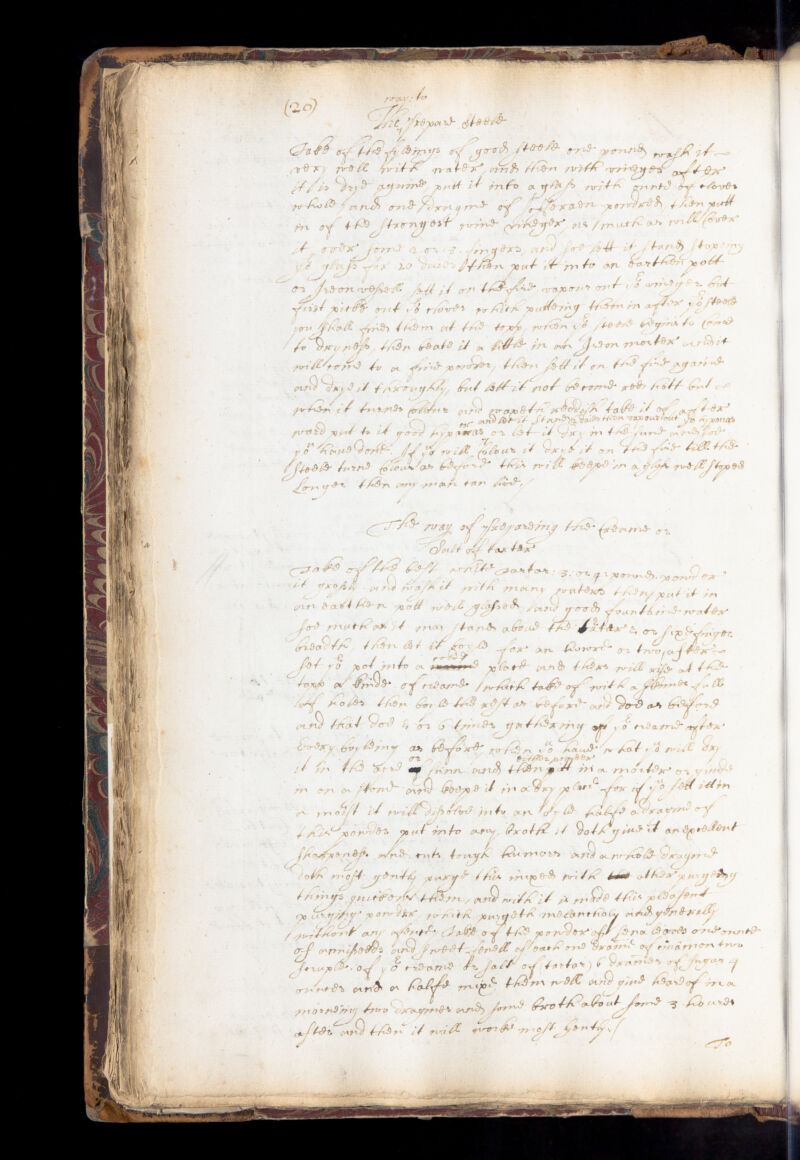 (20)
way to
The prepare steele
Take of the fileings of good steele one pound wash it
very well with water, and then with vineger after
it is drye againe putt it into a glass with ounce of cloves
whole and one dragme of powdred, then putt
in of the strongest wine vineger, as much as will Cover
it over some 2 or 3 fingers, and soe lett it stand stopeing
ye glass for 20 daies then put it into an earthen pott
or Ireon vessell sett it on the fire vapour out ye vineger but
first picke out ye cloves which putteing them in after ye steele
you shall find them at the topp, when ye steele begins to come
to dryness, then beate it a litle in an Ireon morter and it
will come to a fine powder, then sett it on the fire againe
and drye it throughly, but lett it not become redd hott but
when it turnes colour and waxeth reddish take it of after
and let it stand daies then vapour out ye
ward put to it good or let it dry in the sunn and soe
you have done If you will Colour it drye it on the fire till the
steele turne colour as before this will keepe in a glass well stoped
Longer then any man can live /
The way of prepareing the Creame or
Salt of tarter
Take of the best white Tartar: 3: or 4: pounds powder
it grosly and wash it with many waters then put it in
an earthen pott well glassed, and good fountaine water
soe much as it may stand above the tarter 5 or six finger
breadth, then let it boyle for an howre or two after
set ye pot into a could place and there will rise at the
topp a kinde of creame which take of with a skimer full
of holes then boile the rest as before and doe as before
and that doe 4 or 6 times gathering of ye creame after
every boyleing as before, when you have what you will dry
it in the fire or sunn and then putt in a morter or grinde
either powder
in on a stone and keepe it in a dry place for if you sett it in
a moist it will disolve into an oyle halfe a dragme of
this powder put into any broth it doth give it an excellent
sharpeness and cuts tough humors and a whole dragme
doth most gently purge this mixed with other purgeing
things quickens them, and with it is made this pleasent
purging powder which purgeth melancholy and generally
without any offence Take of the powder of sena leaves one ounce
of anniseeds and sweet fenell of each one drame of cinamon two
scruples of ye creame or salt of tartar 6 drames of sugar 4
ounces and a halfe mixe them well and give heareof in a
morneing two dragmes and some broth about some 3 houres
after and then it will worke most gently /
To